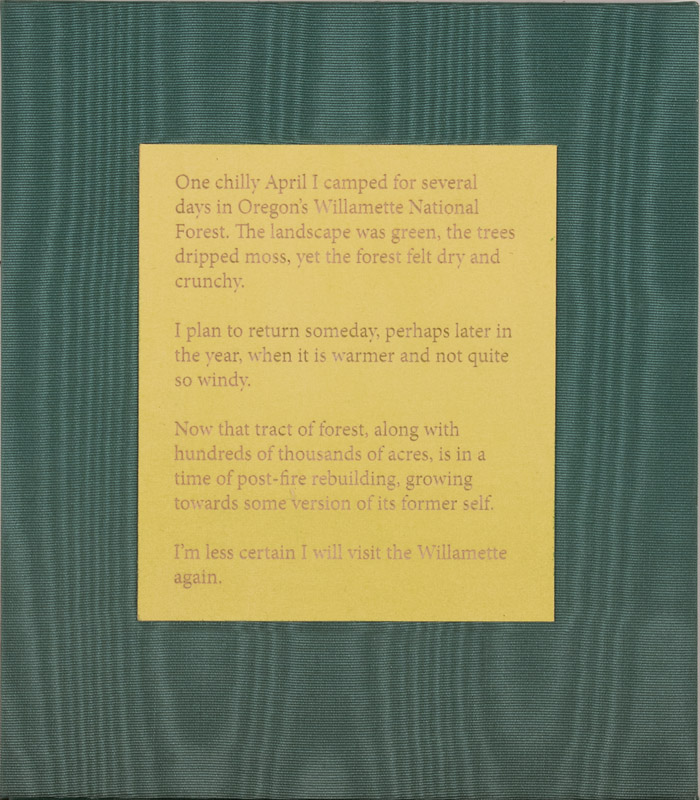 One chilly April I camped for several
days in Oregon's Willamette National
Forest. The landscape was green, the trees
dripped moss, yet the forest felt dry and
crunchy.
I plan to return someday, perhaps later in
the year, when it is warmer and not quite
so windy.
Now that tract of forest, along with
hundreds of thousands of acres, is in a
time of post-fire rebuilding, growing
towards some version of its former self.
I'm less certain I will visit the Willamette
again.